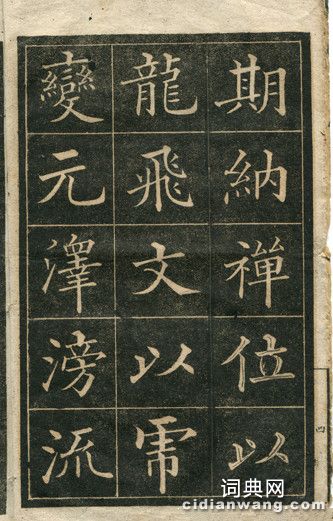 期納禪位以
龍飛文以乕
變元澤滂流
四
词典网
cidianwang.com